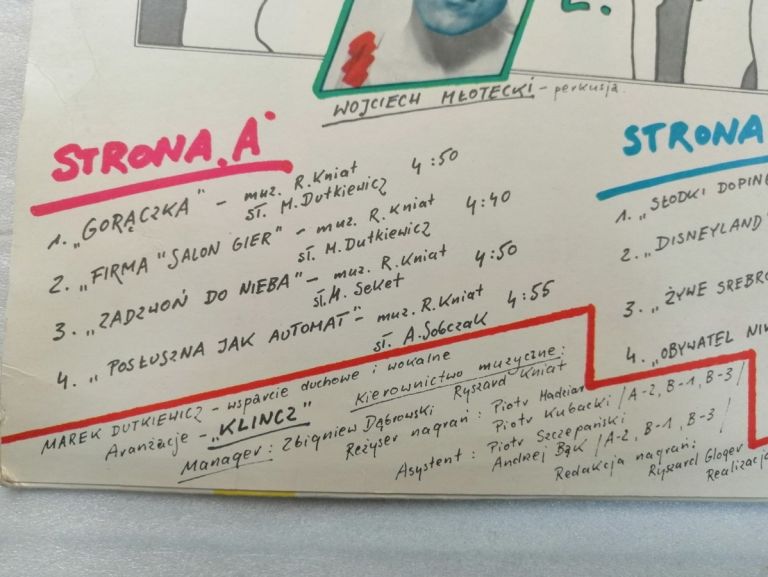 WOJCIECH MŁOTECKI - perkusja
STRONA „A"
1. „GORĄCZKA" - muz. R. Kniat 4:50
sł. M. Dutkiewicz
2. „FIRMA "SALON GIER" - muz. R. Kniat 4:40
sł. M. Dutkiewicz
3. „ZADZWOŃ DO NIEBA" - muz. R. Kniat 4:50
sł. M. Seket
4. „POSŁUSZNA JAK AUTOMAT" - muz. R. Kniat 4:55
sł. A. Sobczak
STRONA
1. „SŁODKI DOPING
2. „DISNEYLAND"
3. „ŻYWE SREBRO
4. „OBYWATEL
MAREK DUTKIEWICZ - wsparcie duchowe i wokalne
Aranżacje - „KLINCZ"
Manager: Zbigniew Dąbrowski
Kierownictwo muzyczne:
Ryszard Kniat
Reżyser nagrań: Piotr Madziar
Piotr Kubacki /A-2, B-1, B-3/
Asystent: Piotr Szczepański
Andrzej Bąk /A-2, B-1, B-3/
Redakcja nagrań:
Ryszard Gloger
Realizacja